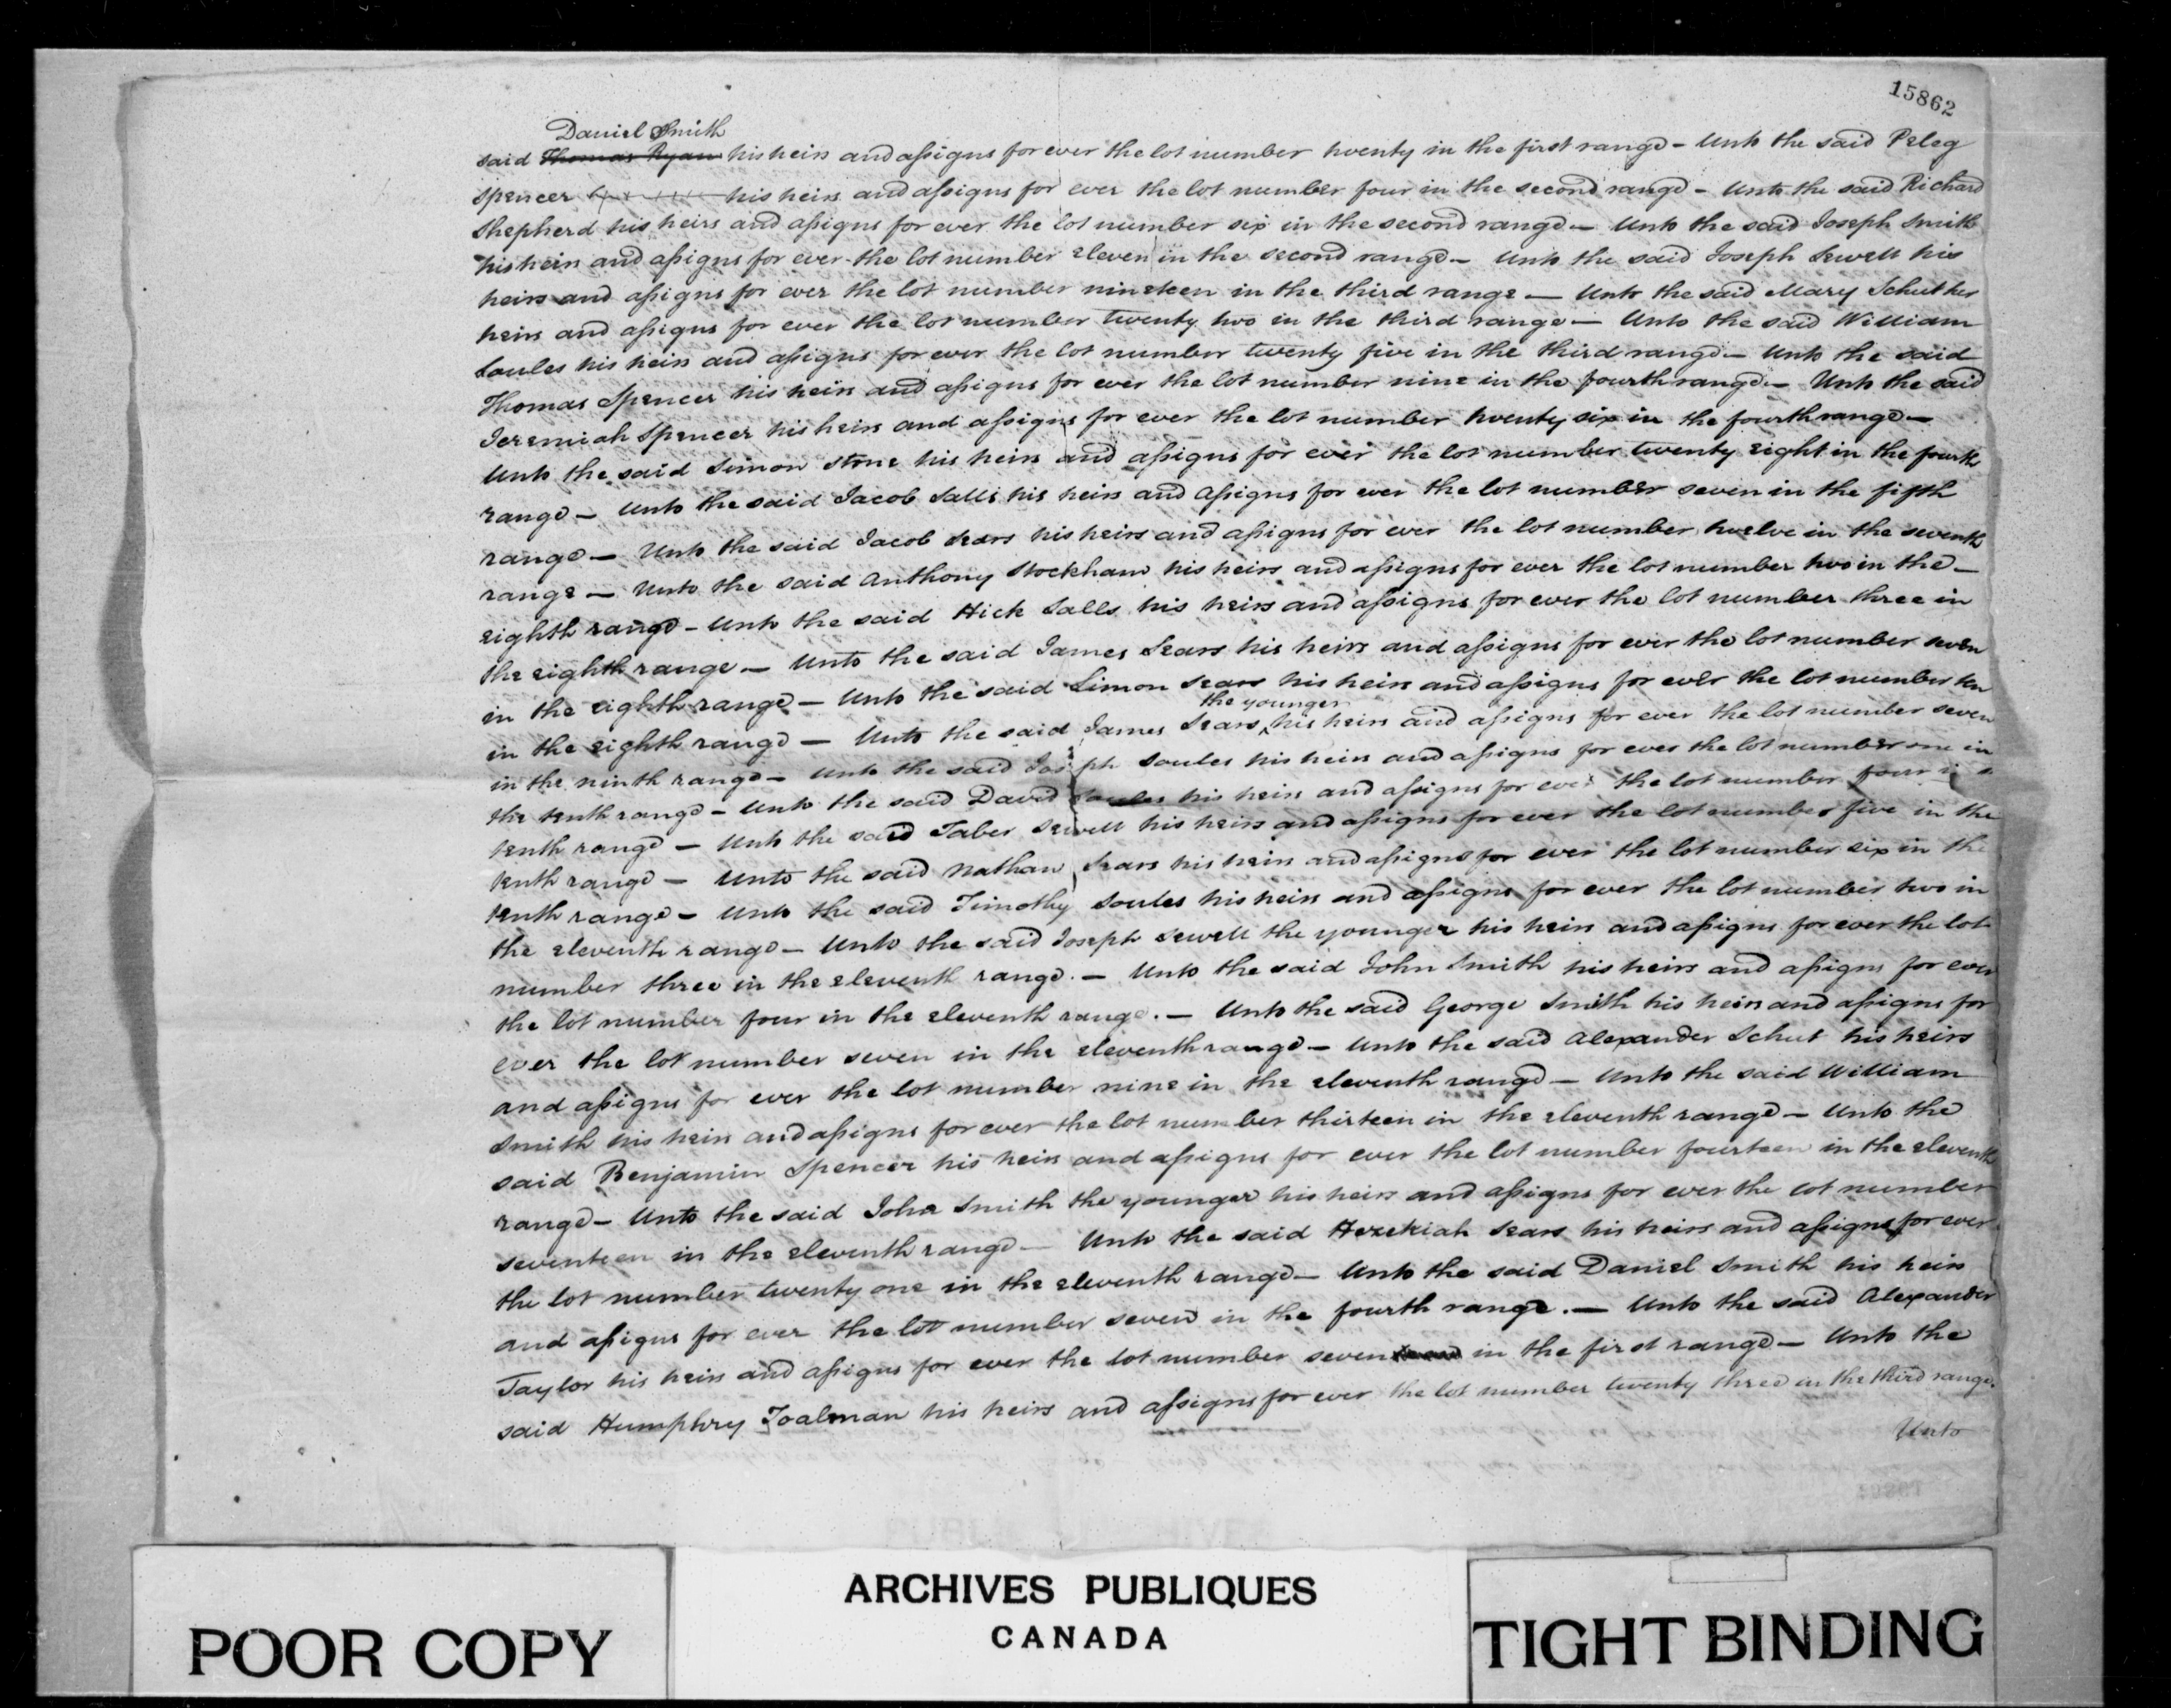 15862
Daniel Smith
said Thomas Ryan his heirs and assigns for ever the lot number twenty in the first range – Unto the said Peleg
Spencer his heirs and assigns for ever the lot number four in the second range – Unto the said Richard
Shepherd his heirs and assigns for ever the lot number six in the second range – Unto the said Joseph Smith
his heirs and assigns for ever the lot number eleven in the second range – Unto the said Joseph Sewell his
heirs and assigns for ever the lot number nineteen in the third range – Unto the said Mary Schut her
heirs and assigns for ever the lot number twenty two in the third range – Unto the said William
Soules his heirs and assigns for ever the lot number twenty five in the third range – Unto the said
Thomas Spencer his heirs and assigns for ever the lot number nine in the fourth range – Unto the said
Jeremiah Spencer his heirs and assigns for ever the lot number twenty six in the fourth range –
Unto the said Simon Stone his heirs and assigns for ever the lot number twenty eight in the fourth
range – Unto the said Jacob Salls his heirs and assigns for ever the lot number seven in the fifth
range – Unto the said Jacob Sears his heirs and assigns for ever the lot number twelve in the seventh
range – Unto the said Anthony Stockham his heirs and assigns for ever the lot number two in the –
eighth range – Unto the said Hick Salls his heirs and assigns for ever the lot number three in
the eighth range – Unto the said James Sears his heirs and assigns for ever the lot number seven
in the eighth range – Unto the said Simon Sears his heirs and assigns for ever the lot number ten
the younger
in the eighth range – Unto the said James Sears his heirs and assigns for ever the lot number seven
in the ninth range – Unto the said Joseph Soules his heirs and assigns for ever the lot number one in
the tenth range – Unto the said David Soules his heirs and assigns for ever the lot number four
tenth range – Unto the said Taber Sewell his heirs and assigns for ever the lot number five in the
tenth range – Unto the said Nathan Sears his heirs and assigns for ever the lot number six in the
tenth range – Unto the said Timothy Soules his heirs and assigns for ever the lot number two in
the eleventh range – Unto the said Joseph Sewell the younger his heirs and assigns for ever the lot
number three in the eleventh range. – Unto the said John Smith his heirs and assigns for ever
the lot number four in the eleventh range. – Unto the said George Smith his heirs and assigns for
ever the lot number seven in the eleventh range – Unto the said Alexander Schut his heirs
and assigns for ever the lot number nine in the eleventh range – Unto the said William
Smith his heirs and assigns for ever the lot number thirteen in the eleventh range – Unto the
said Benjamin Spencer his heirs and assigns for ever the lot number fourteen in the eleventh
range – Unto the said John Smith the younger his heirs and assigns for ever the lot number
seventeen in the eleventh range – Unto the said Hezekiah Sears his heirs and assigns for ever
the lot number twenty one in the eleventh range – Unto the said Daniel Smith his heirs
and assigns for ever the lot number seven in the fourth range. – Unto the said Alexander
Taylor his heirs and assigns for ever the lot number seven in the first range – Unto the
said Humphry Toalman his heirs and assigns for ever the lot number twenty three in the third range.
Unto
POOR COPY
ARCHIVES PUBLIQUES
CANADA
TIGHT BINDING